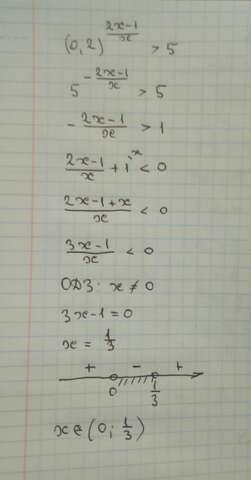 (0,2)^{\frac{2x-1}{x}} > 5
5^{-\frac{2x-1}{x}} > 5
-\frac{2x-1}{x} > 1
\frac{2x-1}{x} + 1^{x} < 0
\frac{2x-1+x}{x} < 0
\frac{3x-1}{x} < 0
ОДЗ: x ≠ 0
3x-1=0
x = \frac{1}{3}
+ - +
0 \frac{1}{3}
x ∈ (0; \frac{1}{3})